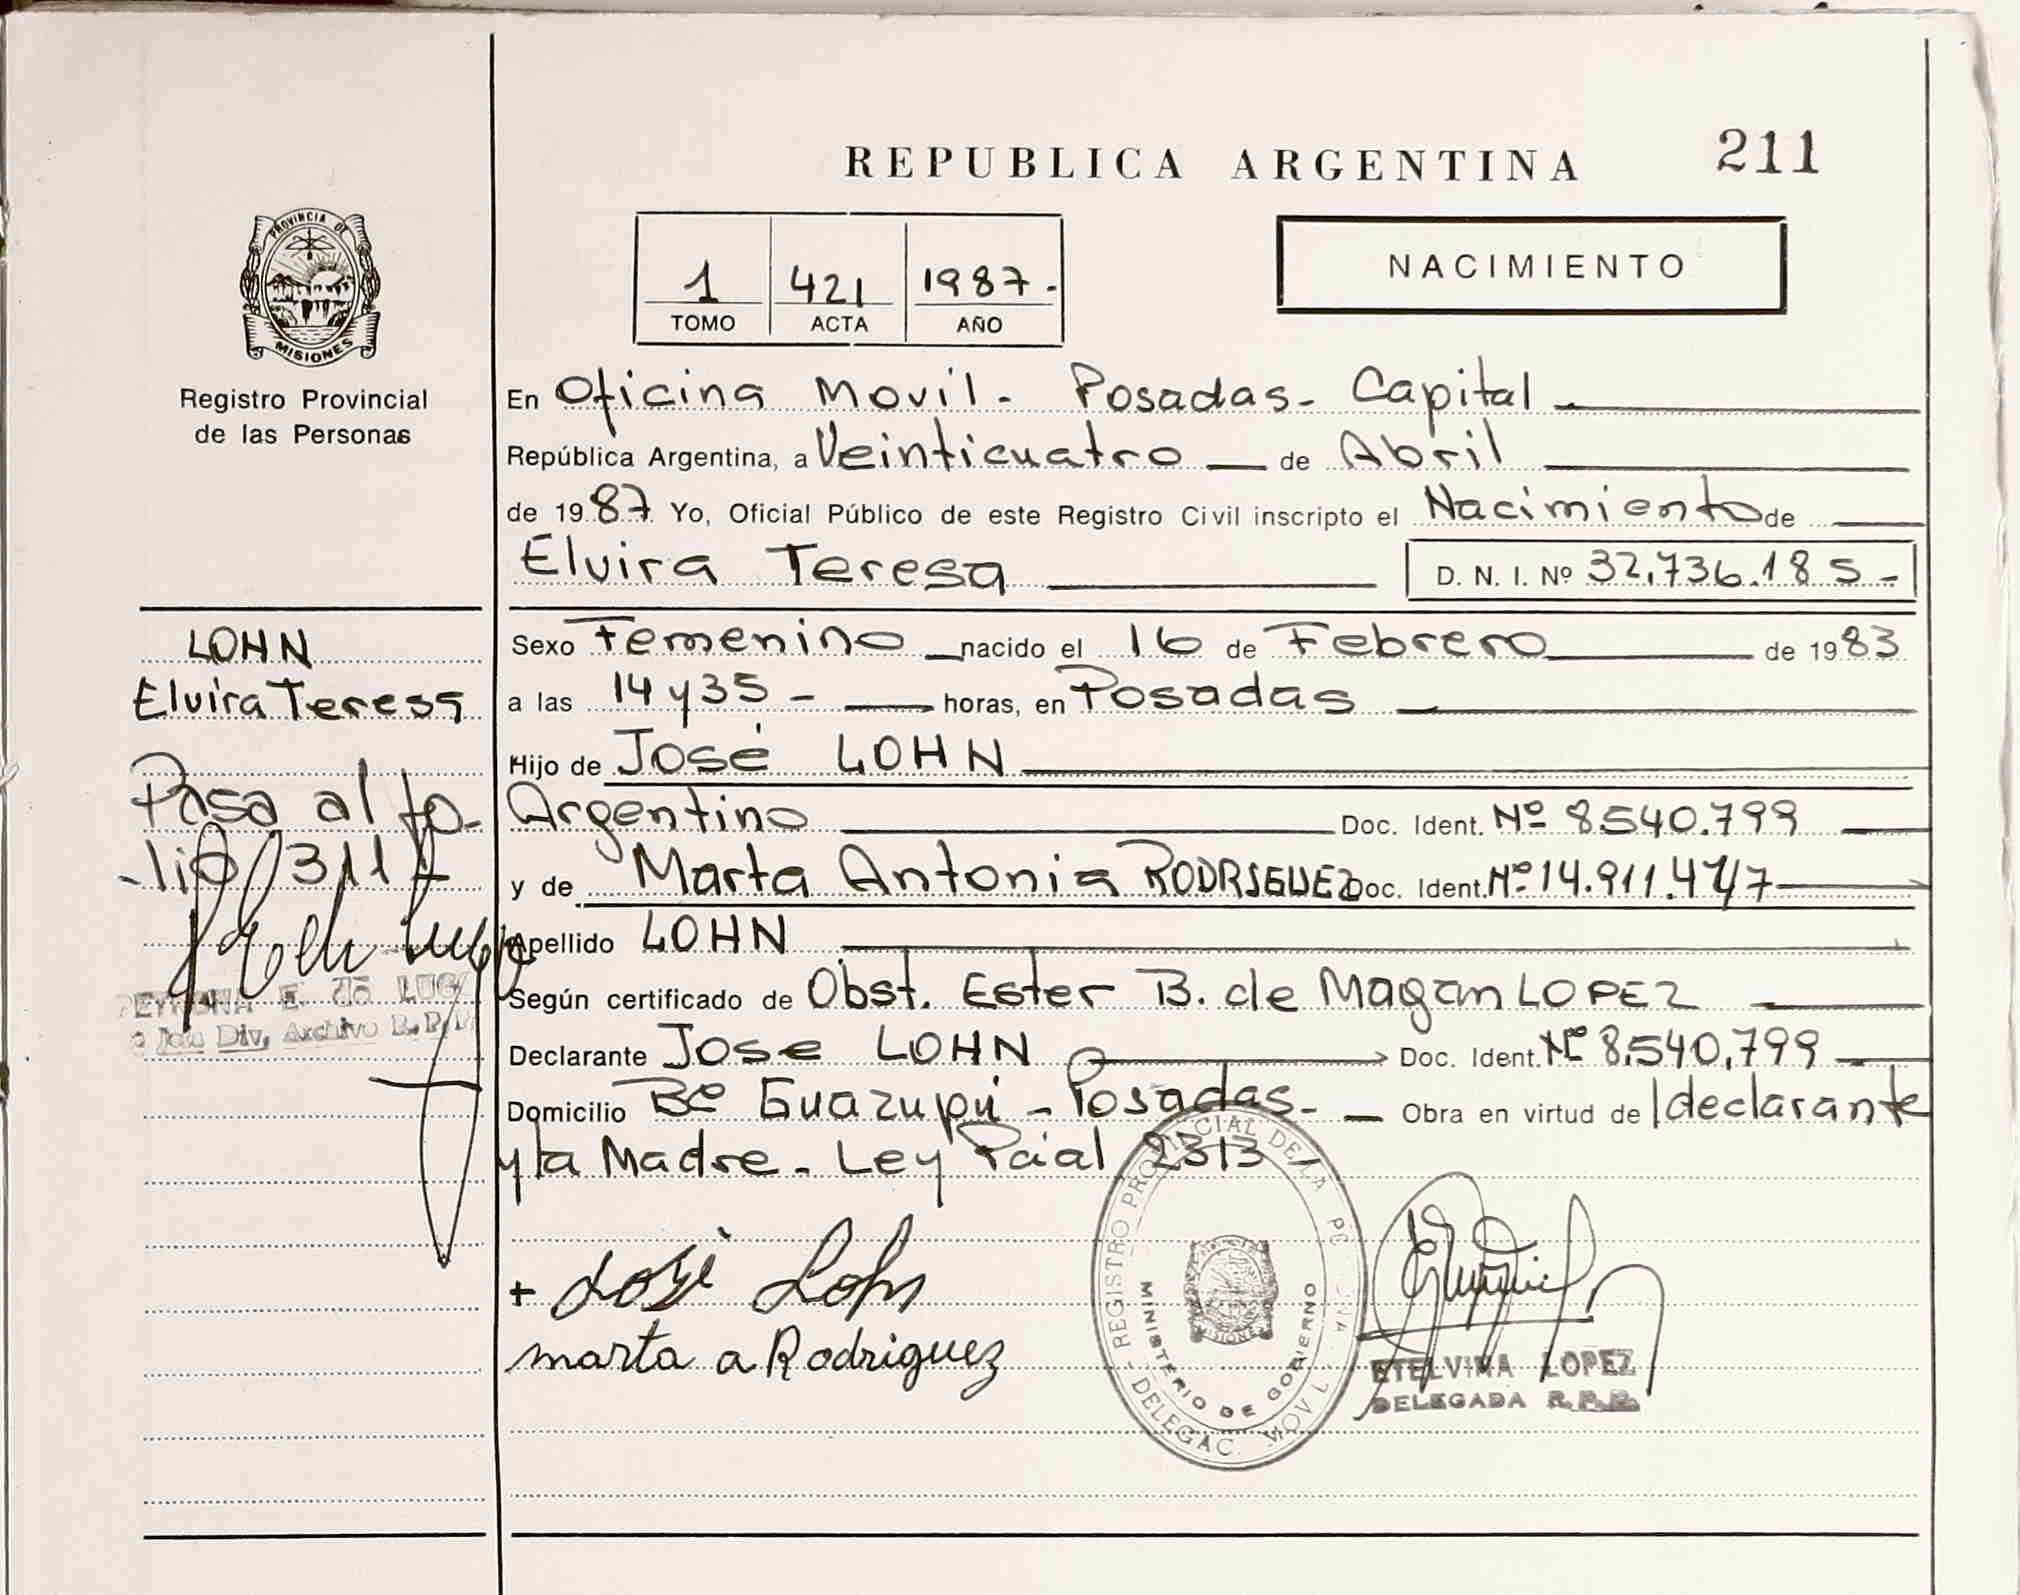 REPUBLICA ARGENTINA 211
PROVINCIA DE
MISIONES
Registro Provincial
de las Personas
1 421 1987.-
TOMO ACTA AÑO
NACIMIENTO
En Oficina Movil - Posadas - Capital
República Argentina, a Veinticuatro de Abril
de 1987 Yo, Oficial Público de este Registro Civil inscripto el Nacimiento de
Elvira Teresa D. N. I. Nº 32.736.185 -
LOHN
Elvira Teresa
Pasa al fo-
-lio 311
E. de LUG
Div. Archivo R. P. P.
Sexo Femenino nacido el 16 de Febrero de 1983
a las 14 y 35 - horas, en Posadas
Hijo de José LOHN
Argentino Doc. Ident. Nº 8.540.799
y de Marta Antonia RODRIGUEZ Doc. Ident. Nº 14.911.477
Apellido LOHN
Según certificado de Obst. Ester B. de Magan LOPEZ
Declarante Jose LOHN Doc. Ident. Nº 8.540.799
Domicilio Bº Guazupú - Posadas - Obra en virtud de declarante
y la Madre - Ley Pcial 2313 -
+ José Lohn
marta a Rodriguez
REGISTRO PROVINCIAL DE LA
MINISTERIO DE GOBIERNO
DELEGAC. MOVIL
MISIONES
ETELVINA LOPEZ
DELEGADA R.P.P.